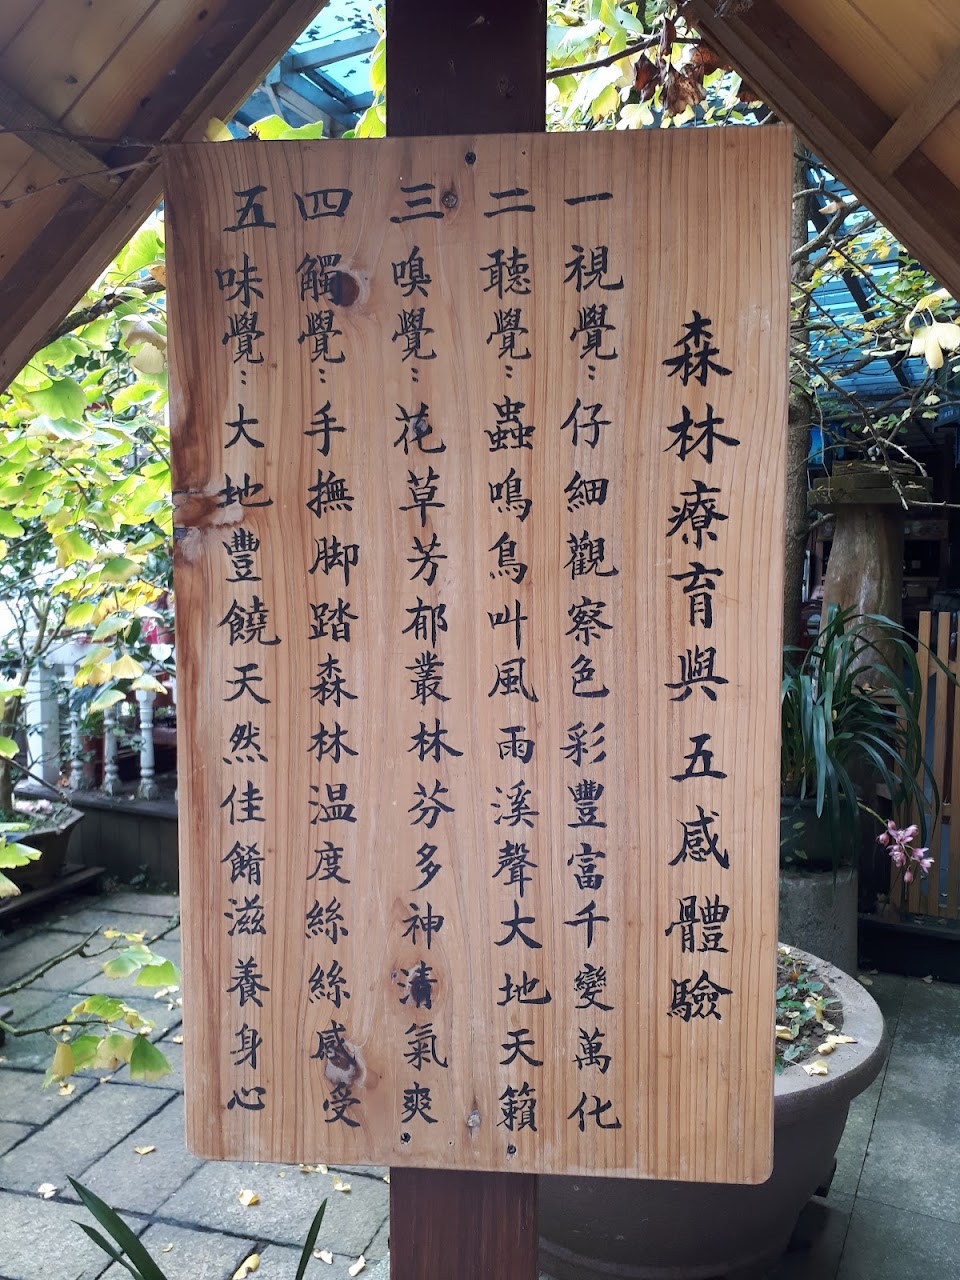 森林療育與五感體驗
一視覺：仔細觀察色彩豐富千變萬化
二聽覺：蟲鳴鳥叫風雨溪聲大地天籟
三嗅覺：花草芳郁叢林芬多神清氣爽
四觸覺：手撫脚踏森林温度絲絲感受
五味覺：大地豐饒天然佳餚滋養身心